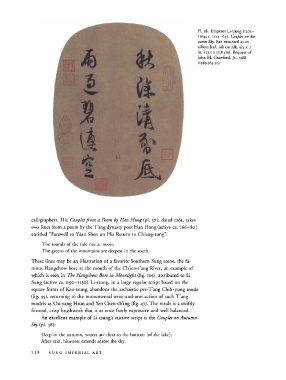 秋深清到底
雨過碧連空
Pl. 38. Emperor Li-tsung (1205–
1264; r. 1224–64). Couplet on Au-
tumn Sky. Fan mounted as an
album leaf, ink on silk, x 7
in. Bequest of
John M. Crawford, Jr., 1988
calligraphers. His Couplet from a Poem by Han Hung (pl. 37), dated 1261, takes
two lines from a poem by the T'ang dynasty poet Han Hung (active ca. 766–80)
entitled "Farewell to Yüan Shen on His Return to Chiang-tung":
The sounds of the tide rise at moon;
The greens of the mountains are deepest in the south.
These lines may be an illustration of a favorite Southern Sung scene, the fa-
mous Hangchow bore at the mouth of the Ch'ien-t'ang River, an example of
which is seen in The Hangchow Bore in Moonlight (fig. 105), attributed to Li
Sung (active ca. 1190–1230). Li-tsung, in a large regular script based on the
square forms of Kao-tsung, abandons the archaistic pre-T'ang Chih-yung mode
(fig. 55), returning to the monumental style and arm action of such T'ang
models as Ou-yang Hsün and Yen Chen-ch'ing (fig. 47). The result is a swiftly
formed, crisp brushwork that is at once freely expressive and well balanced.
An excellent example of Li-tsung's cursive script is the Couplet on Autumn
Sky (pl. 38):
Deep in the autumn, waters are clear to the bottom [of the lake];
After rain, blueness extends across the sky.
128 SUNG IMPERIAL ART